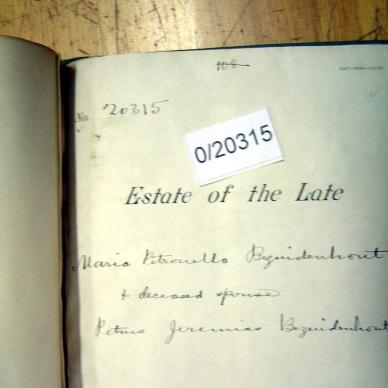 108
No. 20315
0/20315
Estate of the Late
Maria Petronella Bezuidenhout
& deceased spouse
Petrus Jeremias Bezuidenhout